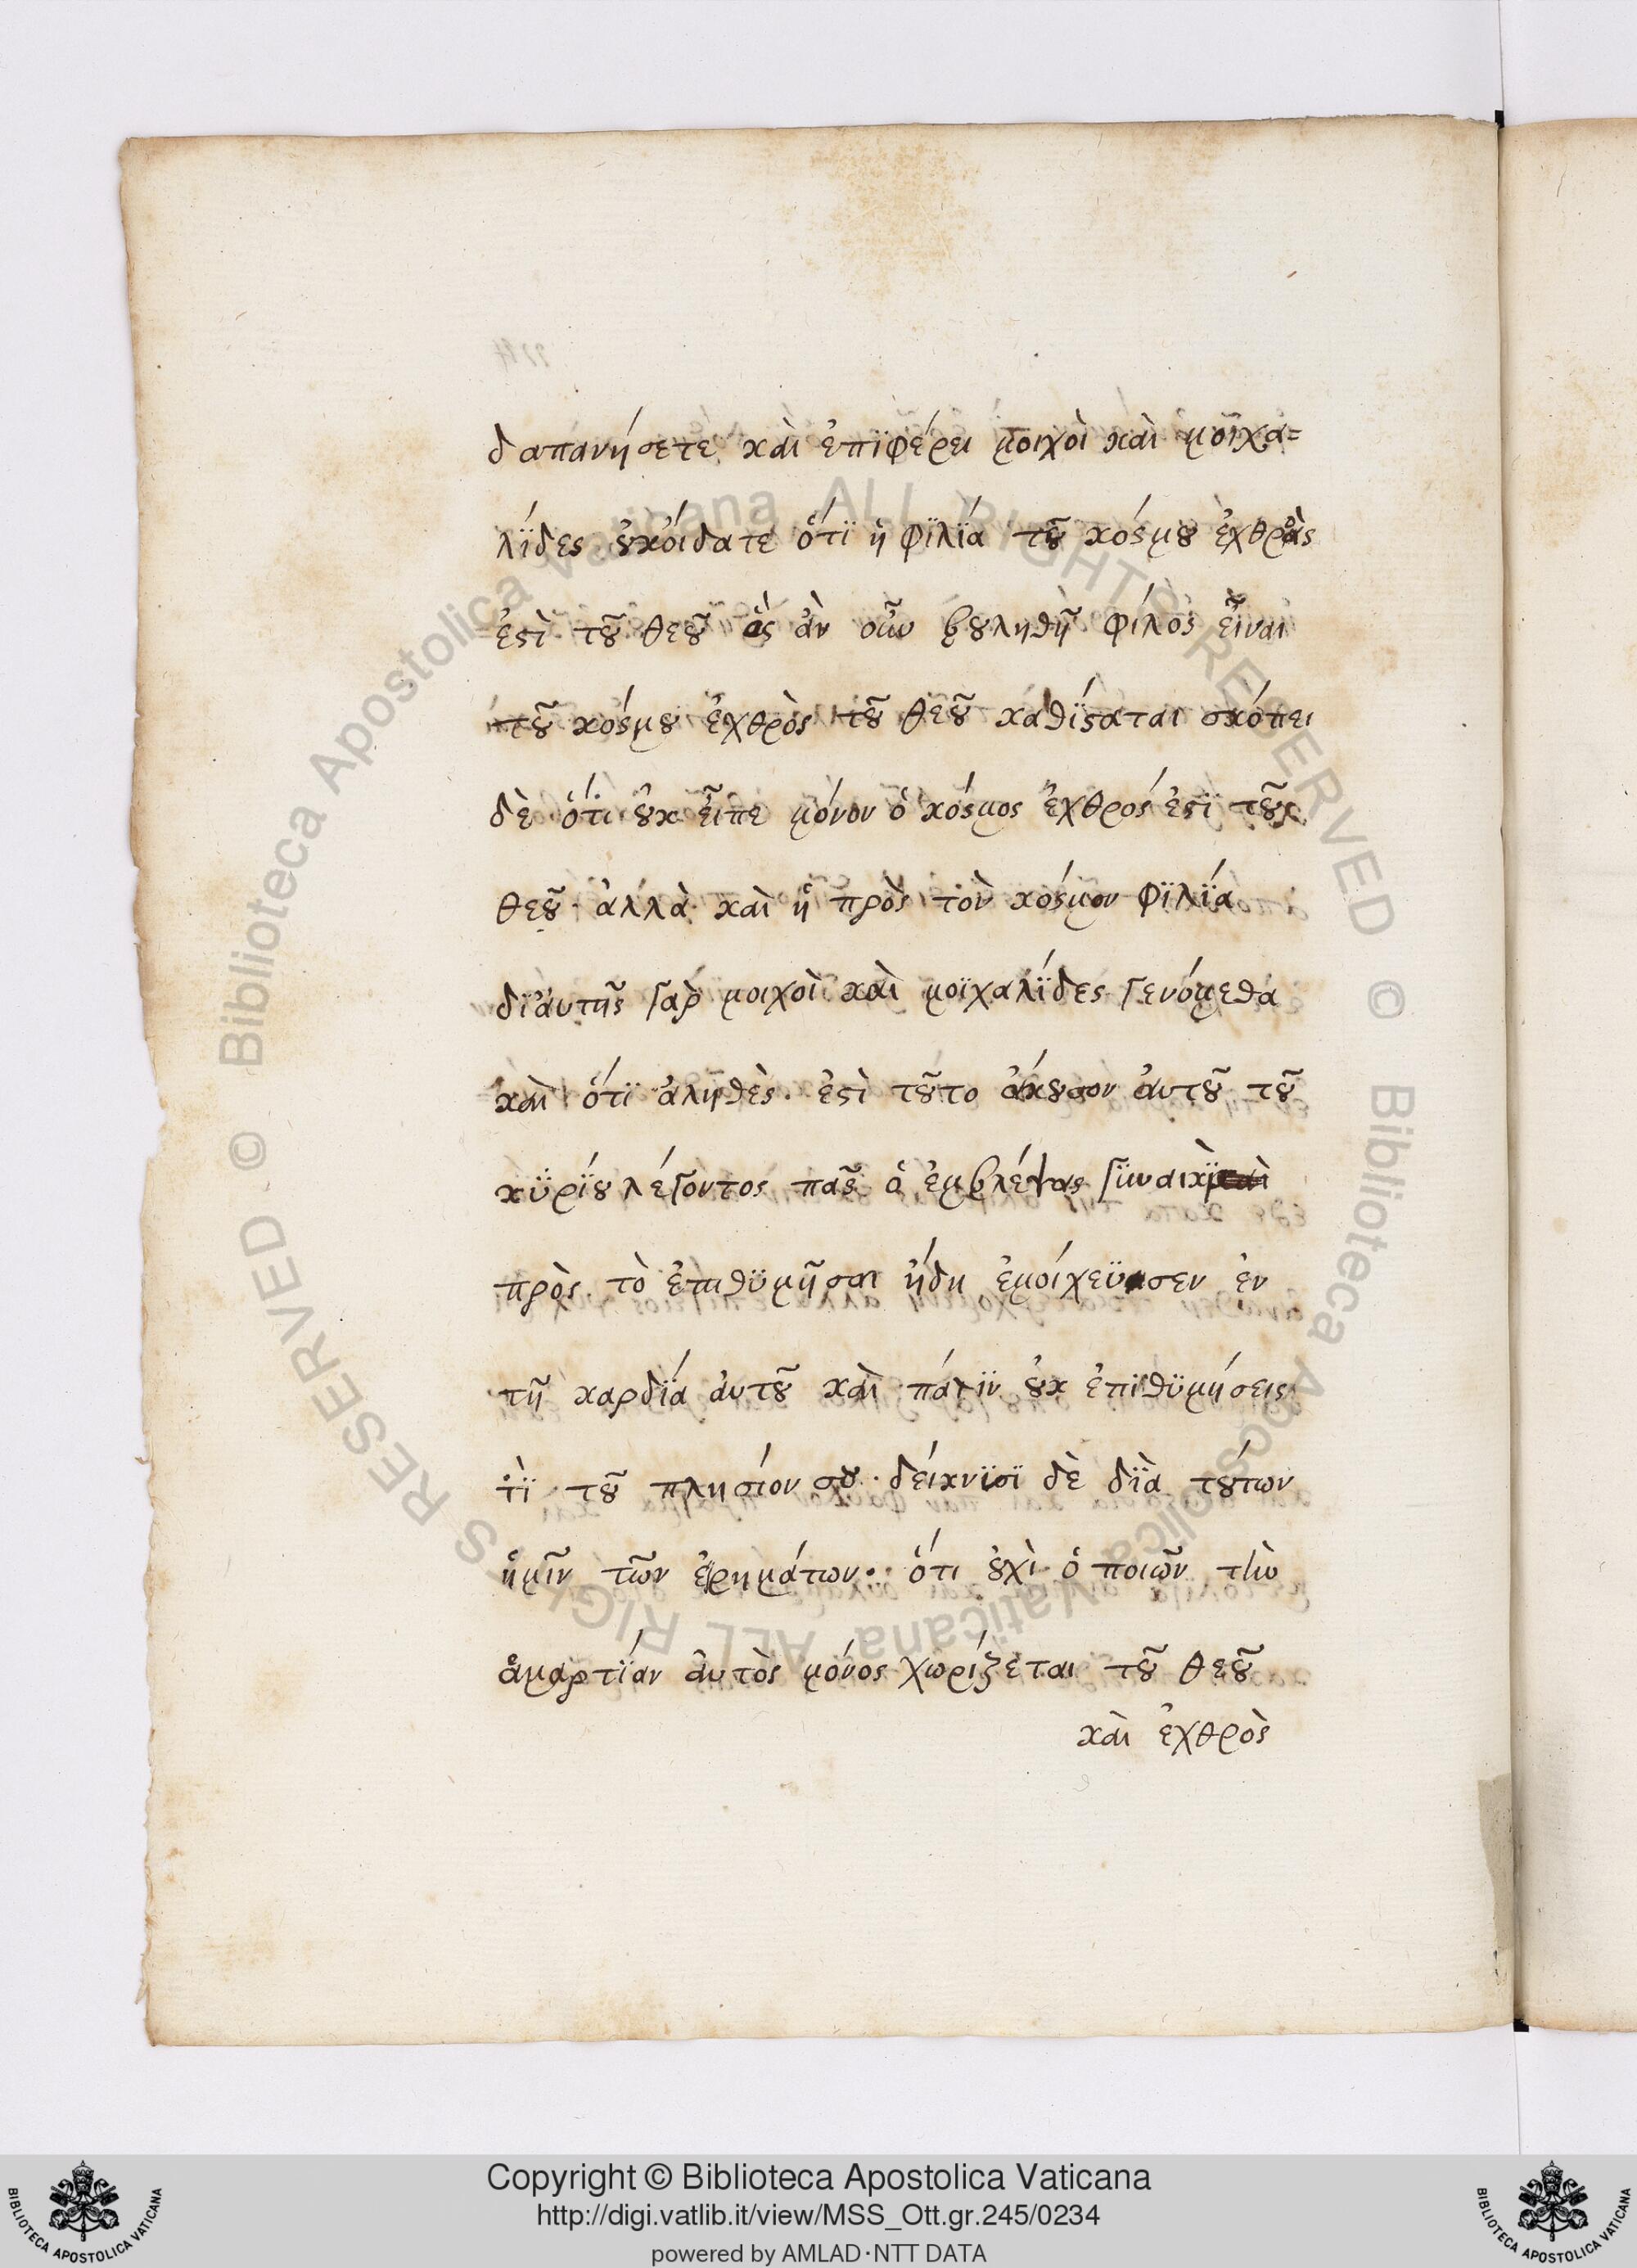 δαπανήσετε, καὶ ἐπϊφέρει μοιχοὶ καὶ μοῖχα=
λΐδες οὐκόιδατε ὅτϊ ἡ φϊλΐα τοῦ κόσμου ἐχθρὸς
ἐστὶ τοῦ θεοῦ ὃς ἀν οὖν βουληθῇ φίλος εἶναι
τοῦ κόσμου ἐχθρὸς τοῦ θεοῦ καθΐσταται σκόπει
δὲ ὅτι οὐκ εἶπε μόνον ὁ κόσμος ἐχθρός ἐστϊ τοῦ
θεοῦ· ἀλλὰ καὶ ἡ πρὸς τὸν κόσμον φϊλΐα
δϊ'ἀυτῆς γὰρ μοιχοὶ καὶ μοϊχαλΐδες γενόμεθα
καὶ ὅτϊ ἀληθὲς· ἐστὶ τοῦτο ἄκουσον ἀυτοῦ τοῦ
κϋρΐου λέγοντος πᾶς ὁ ἐμβλέψας γϋναικὶ
πρὸς τὸ ἐπιθϋμῆσαι ἤδη ἐμοίχεϋσεν ἐν
τῇ καρδΐα ἀυτοῦ καὶ πάλϊν οὐκ ἐπϊθϋμήσεις
τὶ τοῦ πλησίον σου· δείκνϋσϊ δὲ δϊὰ τούτων
ἡμῖν τῶν ἐρημάτων· ὅτι οὐχὶ ὁ ποιῶν τὴν
ἁμαρτΐαν ἀυτὸς μόνος χωρίζεται τοῦ θεοῦ
καὶ ἐχθρὸς
Copyright © Biblioteca Apostolica Vaticana
http://digi.vatlib.it/view/MSS_Ott.gr.245/0234
powered by AMLAD·NTT DATA
BIBLIOTECA APOSTOLICA VATICANA
BIBLIOTECA APOSTOLICA VATICANA
© Biblioteca Apostolica Vaticana ALL RIGHTS RESERVED © Biblioteca Apostolica Vaticana ALL RIGHTS RESERVED